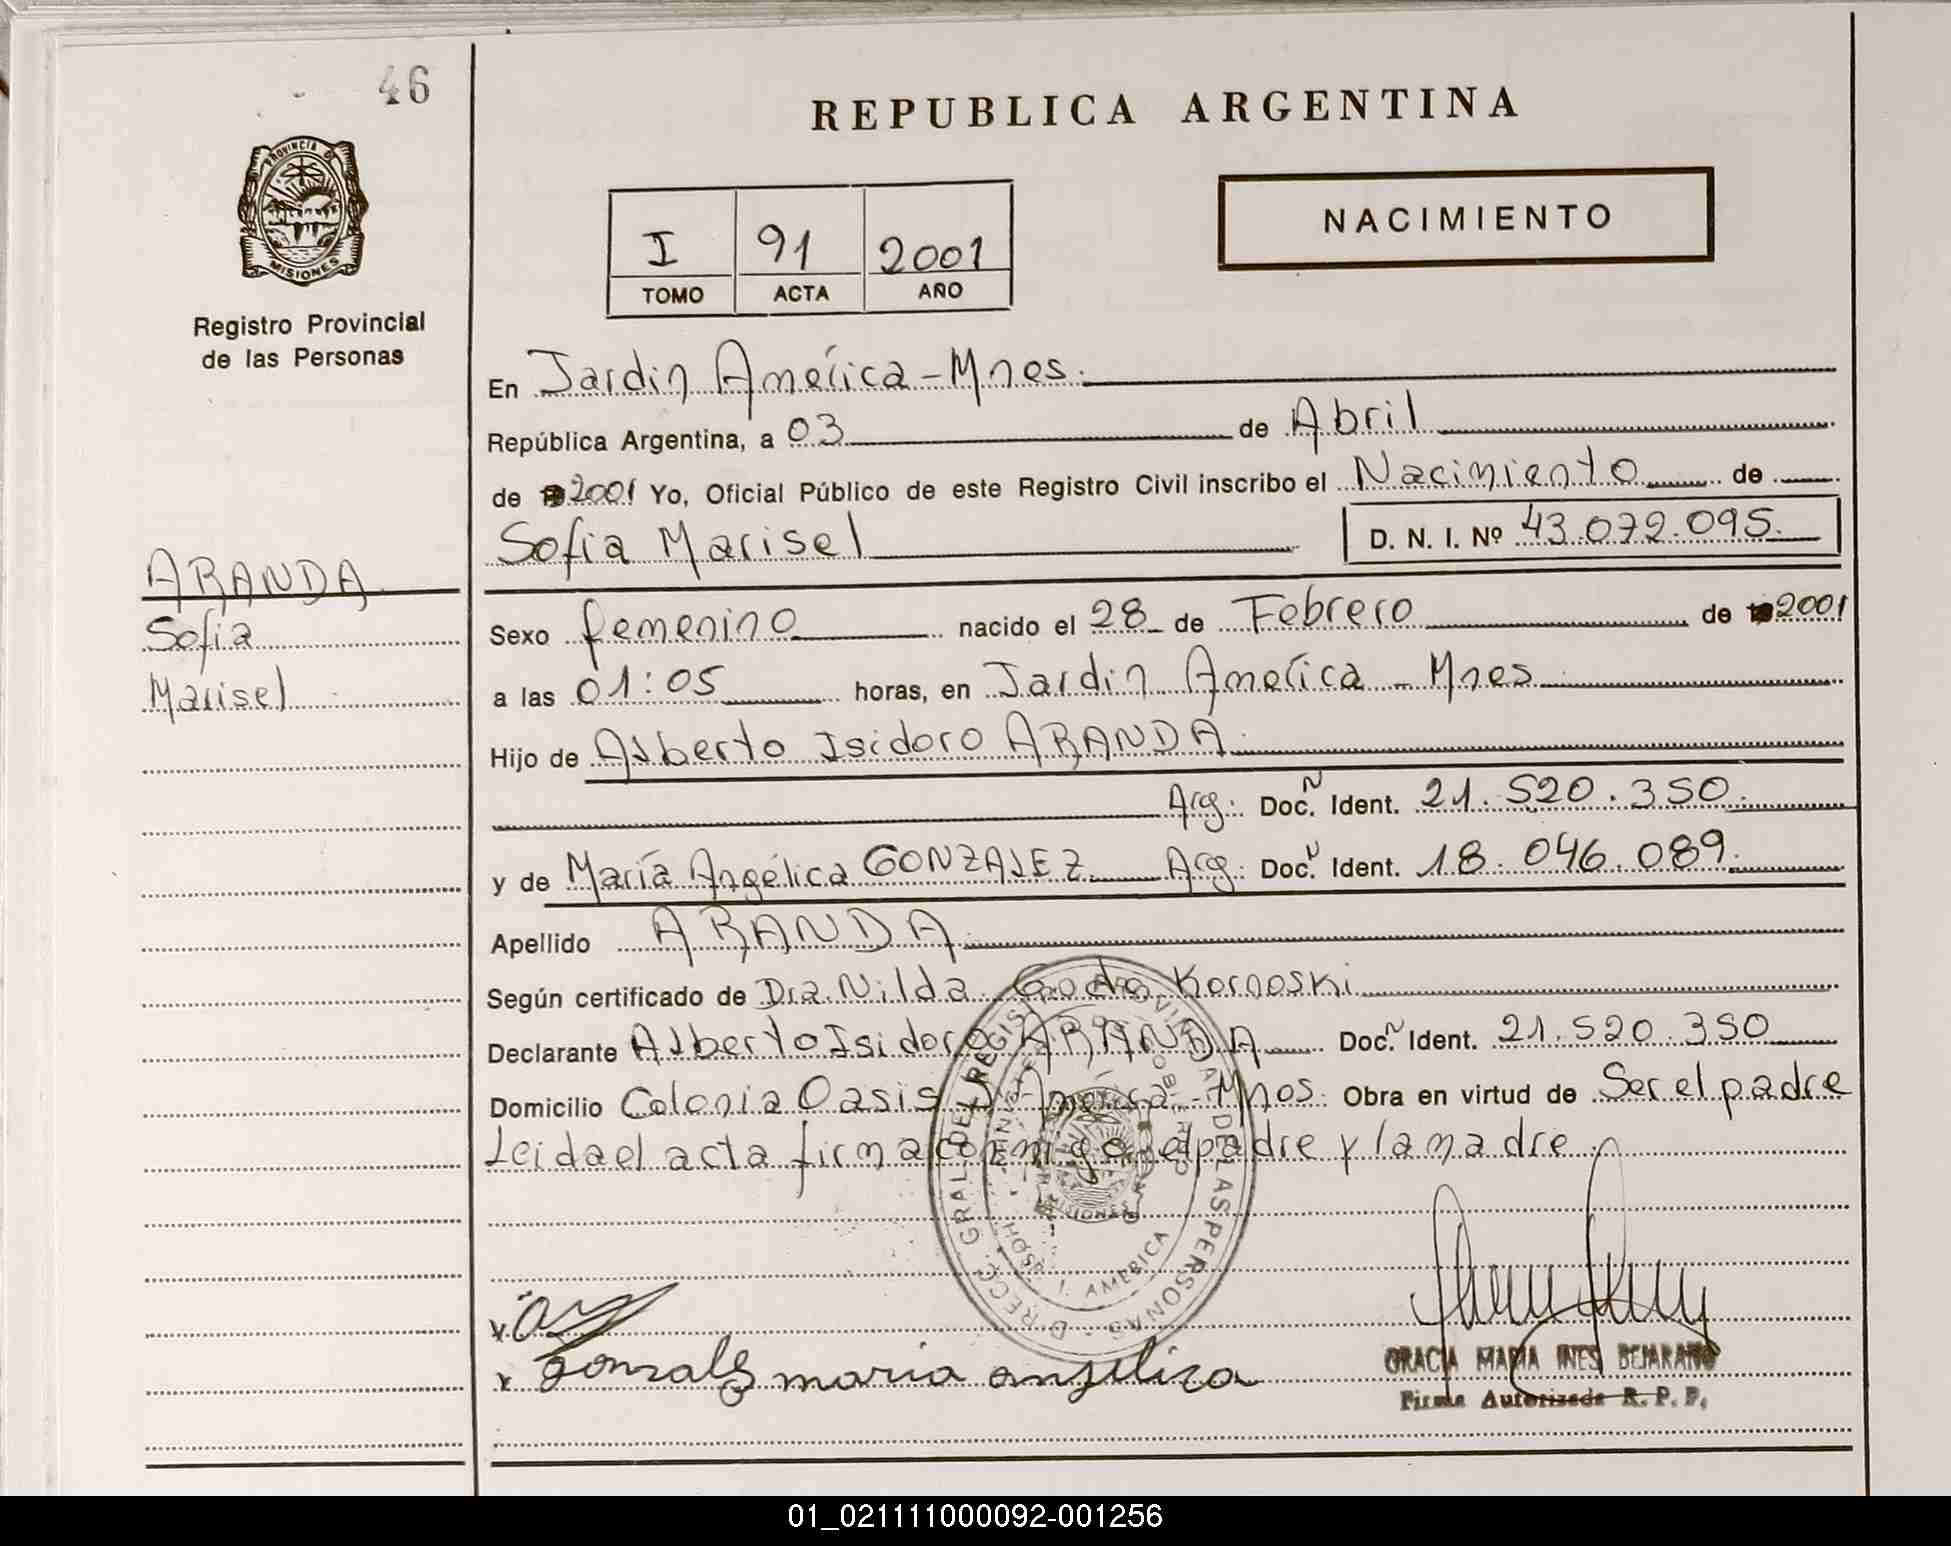 46
REPUBLICA ARGENTINA
PROVINCIA D
MISIONES
NACIMIENTO
I 91 2001
TOMO ACTA AÑO
Registro Provincial
de las Personas
En Jardin América - Mnes.
República Argentina, a 03 de Abril
de 2001 Yo, Oficial Público de este Registro Civil inscribo el Nacimiento de
Sofia Marisel D. N. I. Nº 43.072.095.
ARANDA
Sofia
Marisel
Sexo femenino nacido el 28 de Febrero de 2001
a las 01:05 horas, en Jardin América - Mnes
Hijo de Alberto Isidoro ARANDA
Arg. Doc. N Ident. 21.520.350.
y de María Angélica GONZALEZ Arg. Doc. N Ident. 18.046.089.
Apellido ARANDA
Según certificado de Dra. Nilda Kornoski
Declarante Alberto Isidoro ARANDA Doc. N Ident. 21.520.350
Domicilio Colonia Oasis J. America - Mnes. Obra en virtud de Ser el padre
Leida el acta firma conmigo el padre y la madre.
DE LAS PERSONAS
HOSP. J. AMERICA
MISIONES
gonzalez maria anjelica
GRACIA MARIA INES BEJARANO
Firma Autorizada R. P. P.
01_021111000092-001256